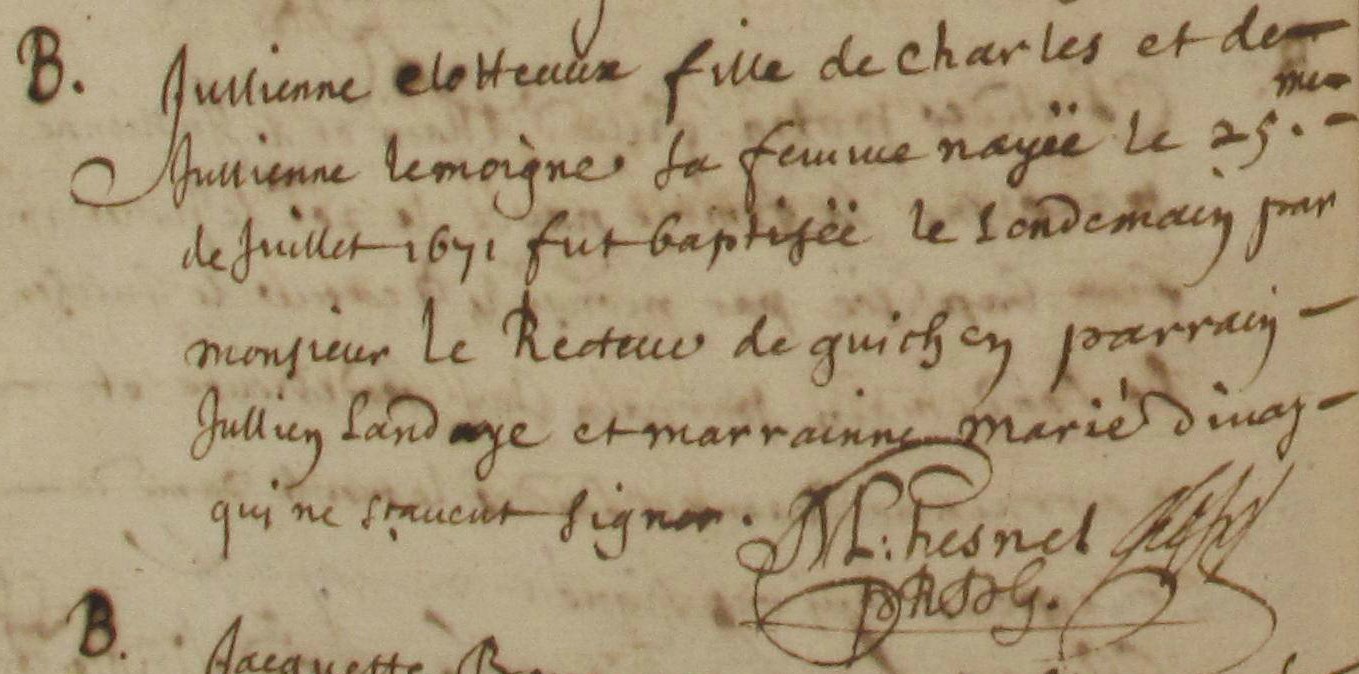 B. Jullienne clotteaux fille de charles et de
Jullienne lemoigne sa femme nayëe le 25.
de Juillet 1671 fut baptisëe le Lendemain par
monsieur le Recteur de guichen parrain
Jullien Landaye et marrainne Marie dinay
qui ne sçavent signer. M. L: hesnel
P R D G.
B. Jacquette